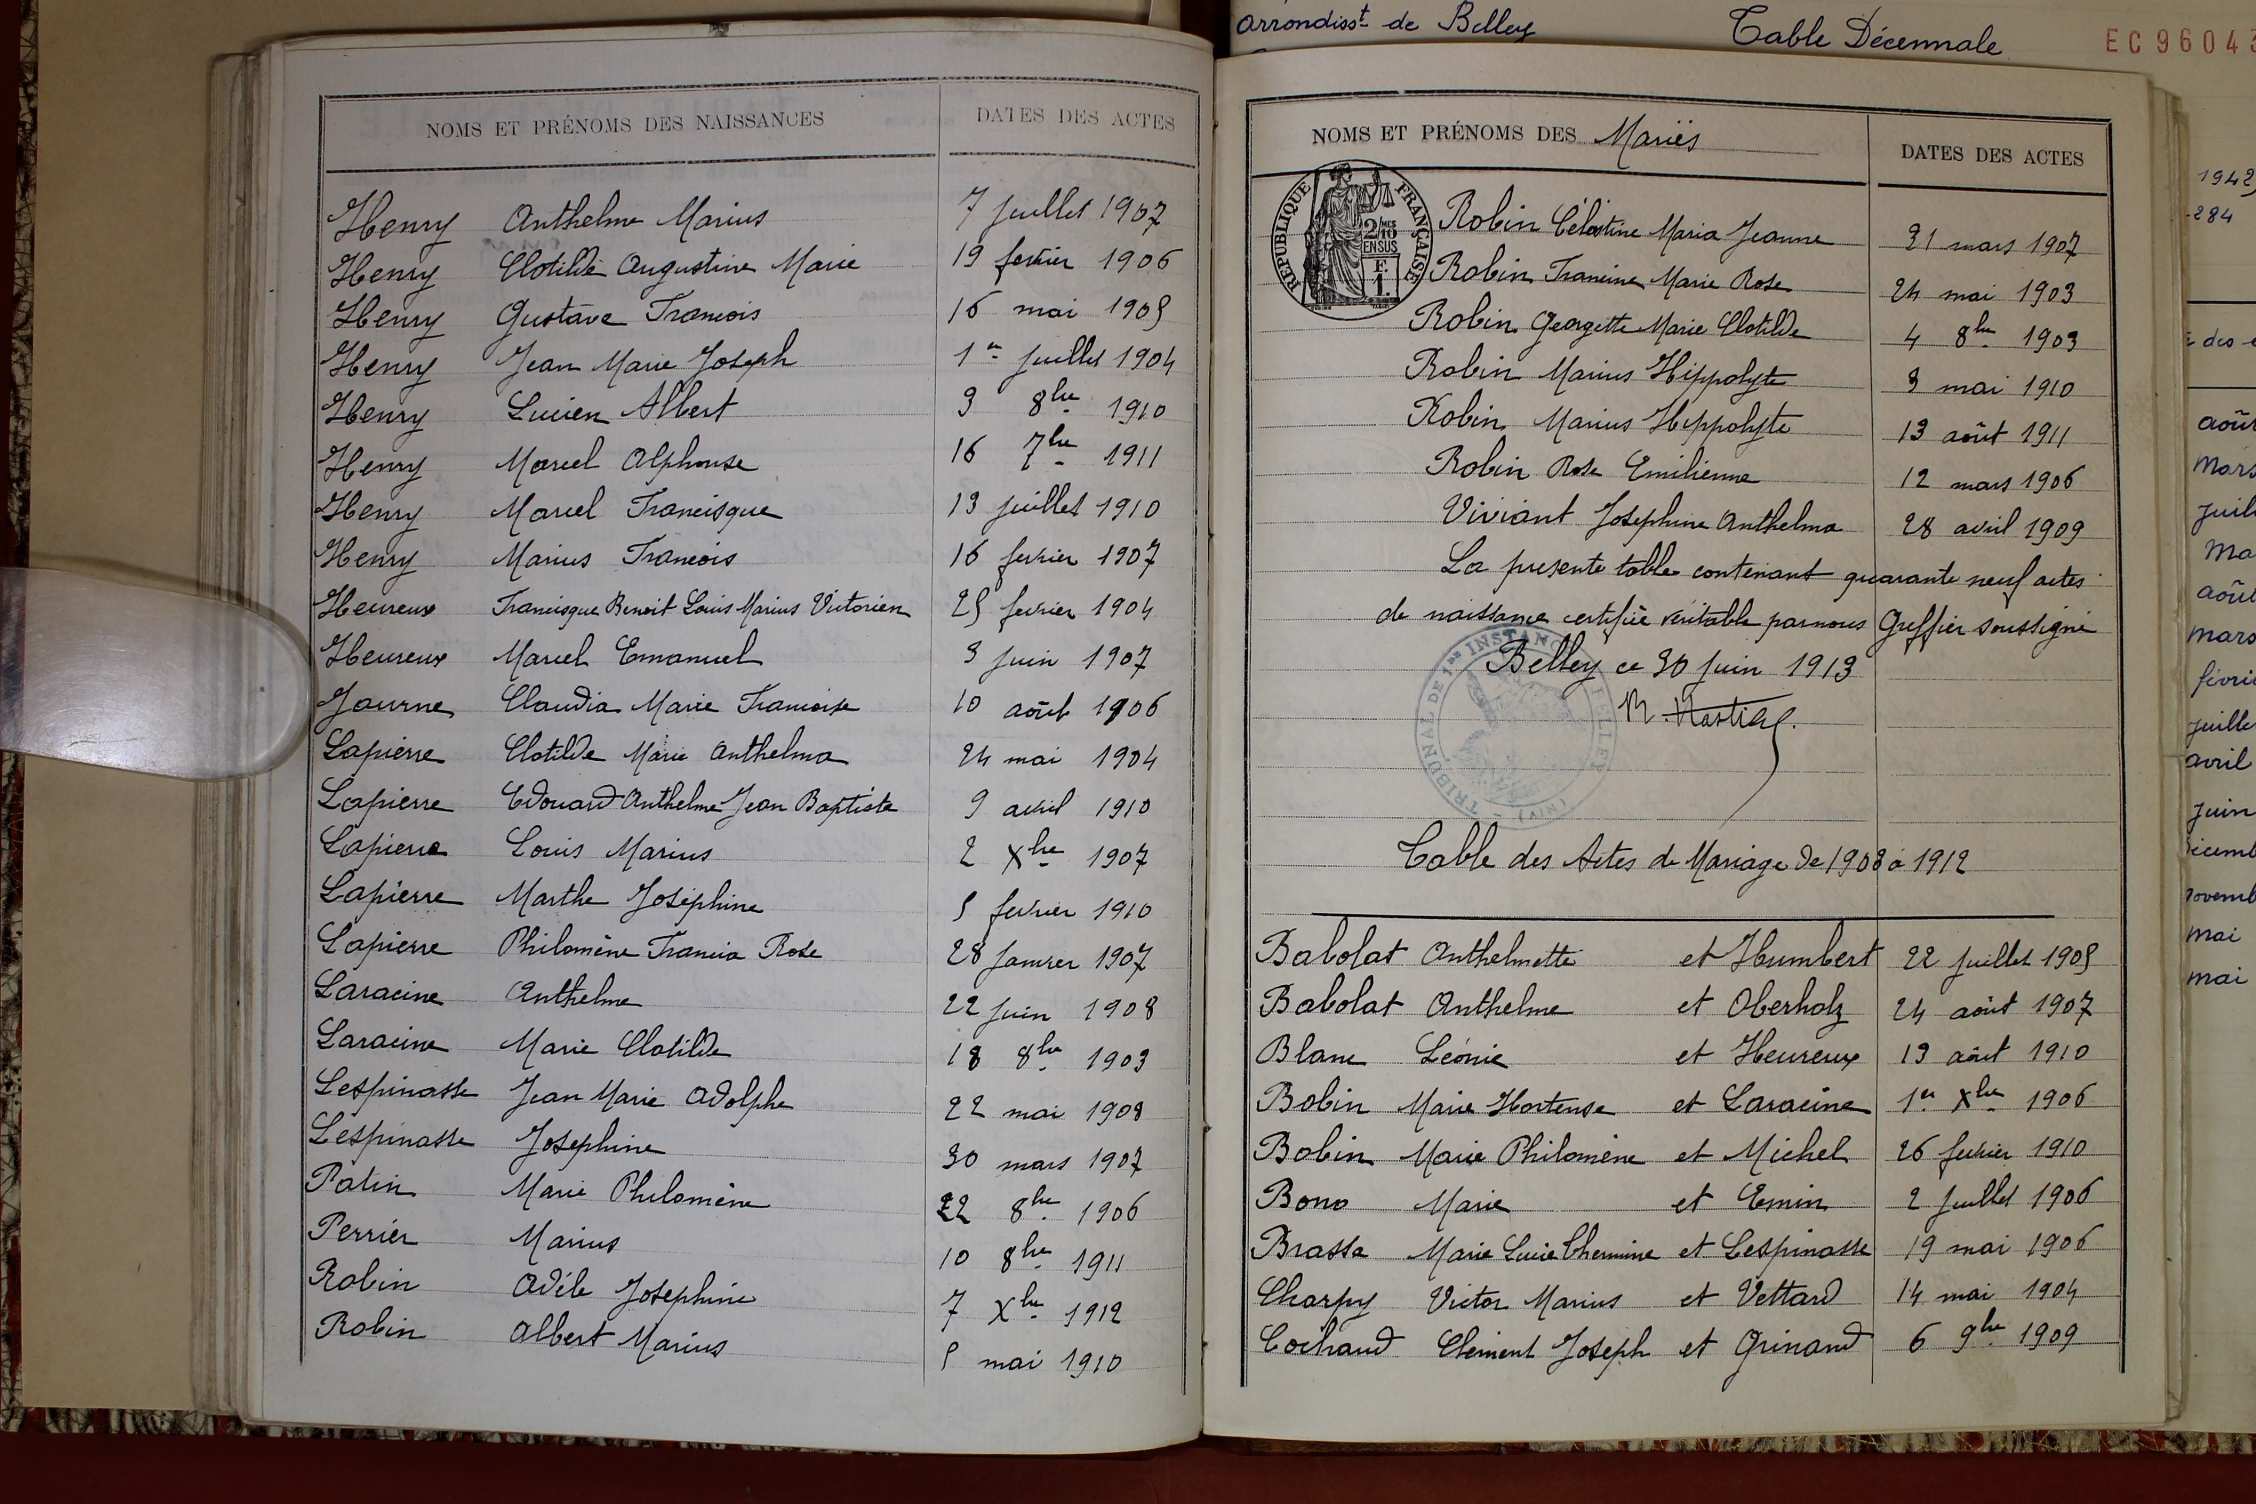 NOMS ET PRÉNOMS DES NAISSANCES DATES DES ACTES
Henry Anthelme Marius 7 juillet 1907
Henry Clotilde Augustine Marie 19 fevrier 1906
Henry Gustave Francois 16 mai 1905
Henry Jean Marie Joseph 1er juillet 1904
Henry Lucien Albert 3 8bre 1910
Henry Marcel Alphonse 16 7bre 1911
Henry Marcel Francisque 13 juillet 1910
Henry Marius Francois 16 fevrier 1907
Heureux Francisque Benoit Louis Marius Victorien 25 fevrier 1904
Heureux Marcel Emanuel 3 juin 1907
Journe Claudia Marie Francoise 10 août 1906
Lapierre Clotilde Marie Anthelma 24 mai 1904
Lapierre Edouard Anthelme Jean Baptiste 9 avril 1910
Lapierre Louis Marius 2 Xbre 1907
Lapierre Marthe Joséphine 5 fevrier 1910
Lapierre Philomène Francia Rose 28 janvier 1907
Laracine Anthelme 22 juin 1908
Laracine Marie Clotilde 18 8bre 1903
Lespinasse Jean Marie Adolphe 22 mai 1908
Lespinasse Josephine 30 mars 1907
Patin Marie Philomène 22 8bre 1906
Perrier Marius 10 8bre 1911
Robin Adèle Josephine 7 Xbre 1912
Robin Albert Marius 5 mai 1910
arrondisst de Belley Table Décennale EC96043
NOMS ET PRÉNOMS DES Mariés DATES DES ACTES
RÉPUBLIQUE FRANÇAISE
2/10 EN SUS
F.
1.
Robin Célestine Maria Jeanne 31 mars 1907
Robin Francine Marie Rose 24 mai 1903
Robin Georgette Marie Clotilde 4 8bre 1903
Robin Marius Hippolyte 3 mai 1910
Robin Marius Hippolyte 13 août 1911
Robin Rose Emilienne 12 mars 1906
Viviant Josephine Anthelma 28 avril 1909
La presente table contenant quarante neuf actes
de naissance certifiée véritable par nous Greffier soussigné
Belley ce 30 juin 1913
TRIBUNAL DE 1RE INSTANCE BELLEY (AIN)
Table des Actes de Mariage de 1903 à 1912
Babolat Anthelmette et Humbert 22 juillet 1905
Babolat Anthelme et Oberholz 24 août 1907
Blanc Léonie et Heureux 13 août 1910
Bobin Marie Hortense et Laracine 1er Xbre 1906
Bobin Marie Philomène et Michel 26 fevrier 1910
Bono Marie et Emin 2 juillet 1906
Brassa Marie Lucie Chermine et Lespinasse 19 mai 1906
Charpy Victor Marius et Vettard 14 mai 1904
Cochand Clément Joseph et Grinand 6 9bre 1909
1942
284
des
août
mars
juil
ma
août
mars
févrie
juille
avril
juin
décemb
novemb
mai
mai